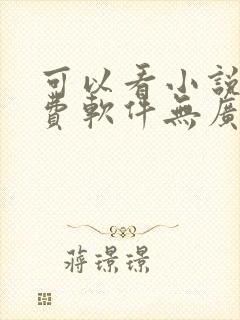 可以看小說
費軟件無廣
蔣璟璟